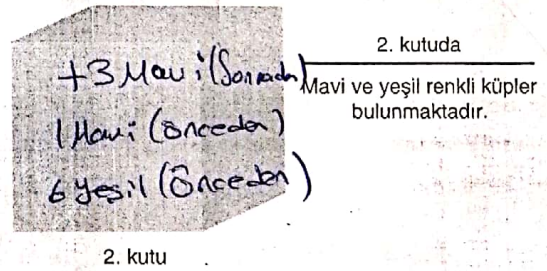 +3 Mavi (Sonradan)
1 Mavi (Önceden)
6 Yeşil (Önceden)
2. kutu
2. kutuda
Mavi ve yeşil renkli küpler
bulunmaktadır.